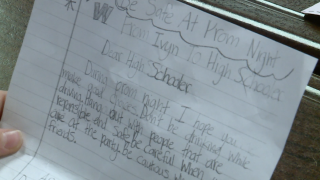 Be Safe At Prom Night
W From Ivyn To High Schooler
Dear High Schooler
During prom night I hope you
make good choices. Don't be drinking while
driving. Hang out with people that are
responsible and safe. Be careful when
are at the party. Be cautious when
friends.